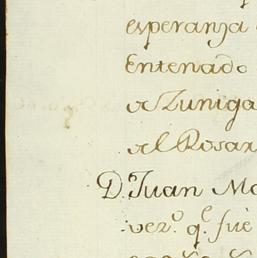 esperanza
Entenado
de Zuniga
del Rosar
D. Juan Mo
vez.º q.e fue